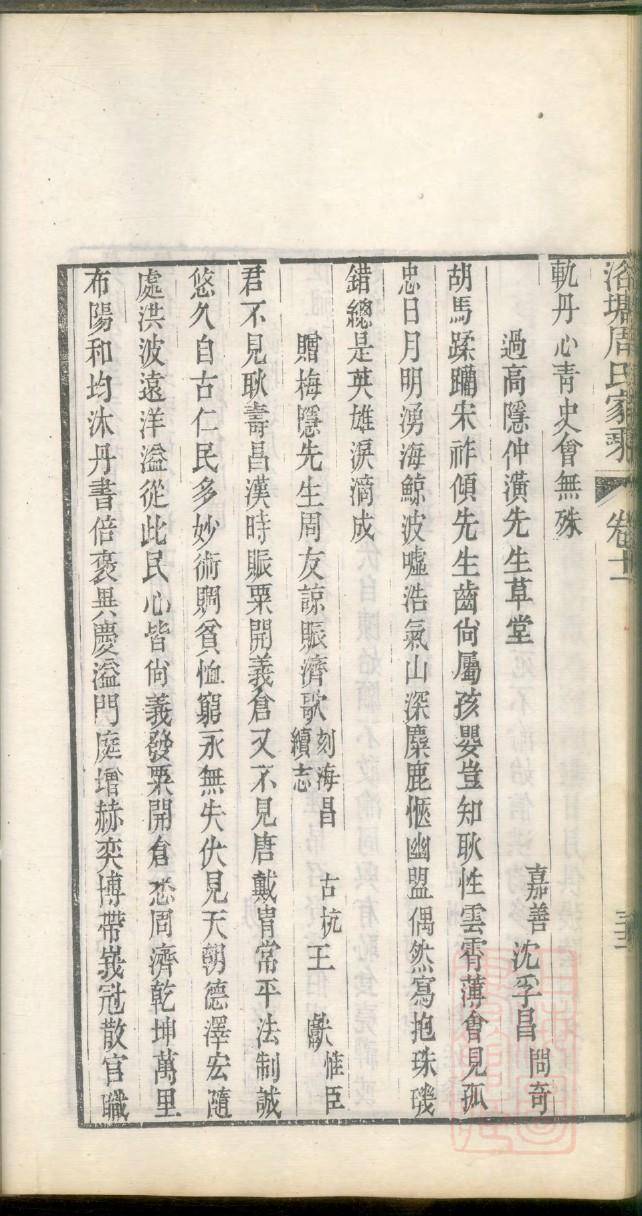 洛塘周氏家乘 卷十二 三十二
軌丹心青史會無殊
過高隱仲潢先生草堂 嘉善 沈孚昌 問奇
胡馬蹂躪宋祚傾先生齒尙屬孩嬰豈知耿性雲霄薄會見孤
忠日月明湧海鯨波噓浩氣山深麋鹿愜幽盟偶然寫抱珠璣
錯總是英雄淚滴成
贈梅隱先生周友諒賑濟歌 刻海昌續志 古杭 王 獻 惟臣
君不見耿壽昌漢時賑粟開義倉又不見唐戴胄常平法制誠
悠久自古仁民多妙術賙貧恤窮永無失伏見天朝德澤宏隨
處洪波遠洋溢從此民心皆尙義發粟開倉悉周濟乾坤萬里
布陽和均沐丹書倍褒異慶溢門庭增赫奕博帶峩冠散官職